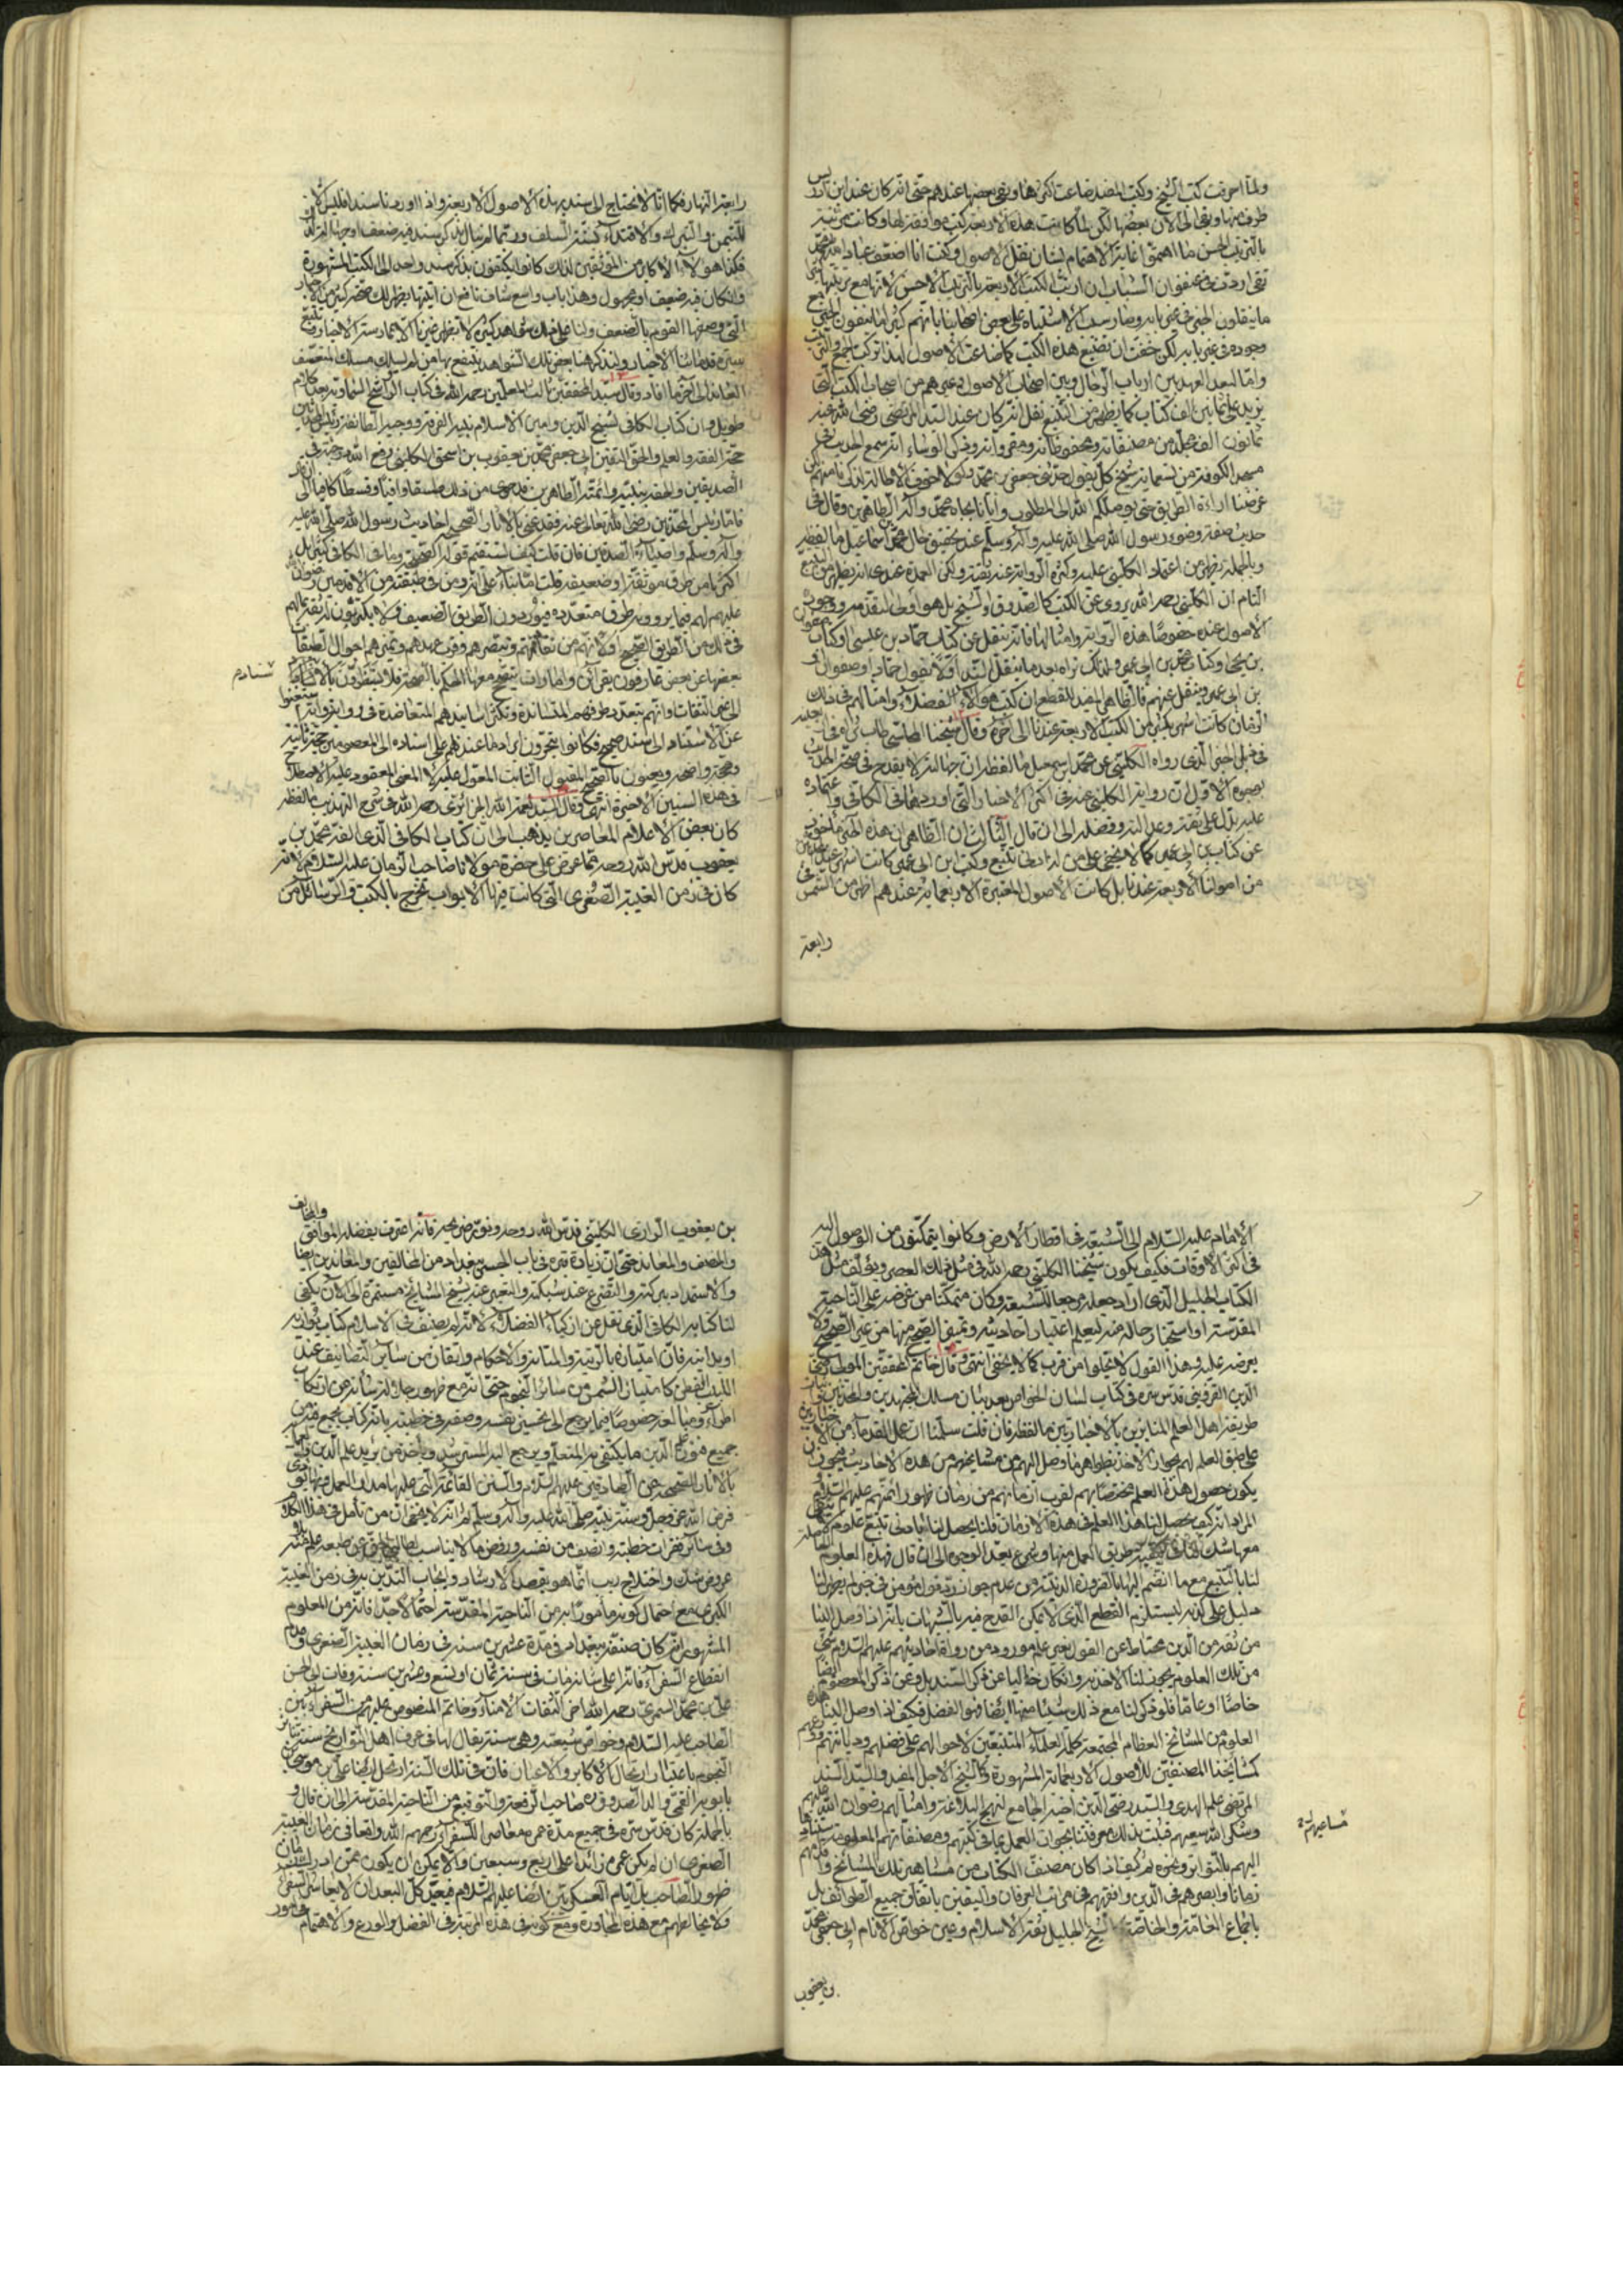 ولما احرقت كتب الشيخ وكتب المفيد ضاعت اكثرها وبقي بعضها عندهم حتى انه كان عند ابن ادريس
طرف منها وبقي الى الآن بعضها لكن لما كانت هذه الاربعة كتب موافقة لها وكانت مرتبة
بالترتيب الحسن ما اهتموا غاية الاهتمام لشأن نقل الاصول وكنت انا اضعف عباد الله محمد
تقي اردت في عنفوان الشباب ان ارتب الكتب الاربعة بالترتيب الاحسن لانها مع ترتيبها
ما ينقلون الخبر في غير بابه وصار سبب الاشتباه على بعض اصحابنا بانهم كثيرا ما ينفون الخبر مع
وجوده في غير بابه لكن خفت ان يضيع هذه الكتب كما ضاعت الاصول لهذا تركت الجمع والترتيب
واما لبعد العهد بين ارباب الرجال وبين اصحاب الاصول وغيرهم من اصحاب الكتب التي
يزيد على ثمانين الف كتاب كما يظهر من التتبع نقل انه كان عند السيد المرتضى رضي الله عنه
ثمانون الف مجلد من مصنفاته ومحفوظاته ومقرواته وذكر الوشاء انه سمع الحديث في
مسجد الكوفة من تسعماية شيخ كل يقول حدثني جعفر بن محمد ولولا خوف الاطالة لذكرنا منهم لكن
غرضنا اراءة الطريق حتى يوصلكم الله الى المطلوب وايانا بجاه محمد وآله الطاهرين وقال في
حديث صفة وضوء رسول الله صلى الله عليه وآله وسلم عند تحقيق حال محمد بن اسماعيل ما لفظه
وبالجملة يظهر من اعتماد الكليني عليه وكثرة الرواية عنه ثقته ولكن العمدة عندي انه يظهر من التتبع
التام ان الكليني رحمه الله يروي عن الكتب كالصدوق والشيخ بل هو اولى لتقدمه ووجود
الاصول عنده خصوصا هذه الرواية وامثالها فانه نقل عن كتاب حماد بن عيسى او كتاب صفوان
بن يحيى او كتاب محمد بن ابي عمير ولذلك تراه بعد ما ينقل السند اولا يقول حماد او صفوان او
بن ابي عمير وينقل عنهم فالظاهر المفيد للقطع ان كتب هؤلاء الفضلاء وامثالهم في ذلك
الزمان كانت اشهر بكثير من الكتب الاربعة عندنا الى آخره وقال شيخنا المجلسي طاب ثراه في
في ذيل الخبر الذي رواه الكليني عن محمد بن اسمعيل ما لفظه ان جهالته لا يقدح في صحة الحديث
بوجوه الاول ان رواية الكليني عنه في اكثر الاخبار التي اوردها في الكافي واعتماده
عليه يدل على ثقته وعدالته وفضله الى ان قال الثالث ان الظاهر ان هذه الخبر مأخوذ
عن كتاب بن ابي عمير كما لا يخفى على من له ادنى تتبع وكتب ابن ابي عمير كانت اشهر عند المحدثين
من اصولنا الاربعة عندنا بل كانت الاصول المعتبرة الاربعماية عندهم اظهر من الشمس في
رابعة
رابعة النهار فكما انا لا نحتاج الى سند بهذه الاصول الاربعة واذا اوردنا سندا فليس الا
للتيمن والتبرك والاقتداء بسنة السلف وربما لم يبال بذكر سند فيه ضعف او جهالة لذلك
فكذا هؤلاء الاكابر من المؤلفين لذلك كانوا يكتفون بذكر سند واحد الى الكتب المشهورة
وان كان فيه ضعيف او مجهول وهذا باب واسع شاف نافع ان اتيتها يظهر لك صحة كثير من الاخبار
التي وصفها القوم بالضعف ولنا على ذلك شواهد كثيرة لا تظهر على غيرنا الا بممارسة الاخبار وتتبع
سيرة قدمائنا الاخيار ولنذكر هنا بعض تلك الشواهد ينتفع بها من لم يسلك مسلك المتعسف
المعاند الى آخر ما افاد وقال سيد المحققين ثالث المعلمين رحمه الله في كتاب الرواشح السماوية بعد كلام
طويل وان كتاب الكافي لشيخ الدين وامين الاسلام نبيه الفرقة ووجيه الطائفة رئيس المحدثين
حجة الفقه والعلم والحق واليقين ابي جعفر محمد بن يعقوب بن اسحق الكليني رفع الله درجته في
الصديقين والحقه بنبيه وائمته الطاهرين
فاما رئيس المحدثين رضي الله تعالى عنه فقد عني بالآثار الصحيحة احاديث رسول الله صلى الله عليه
وآله وسلم واوصيائه الصادقين فان قلت كيف يستقيم قوله الصحيحة وما في الكافي كثير بل
اكثرها من طرق موثقة او ضعيفة قلت
عليهم لهم فيما يروونه طرق متعددة فيوردون الطريق الضعيف ولا يكترثون
في ذلك من الطريق الصحيح
بعضها عن بعض
الى غير الثقات وانهم بتعدد طرقهم المتساندة وتكثر اسانيدهم المتعاضدة في رواية رواية استغنوا
عن الاسناد الى سند صحيح فكانوا يتحرون
وصححه واصحه ويعنون بالصحيح المقبول الثابت المعول عليه لا المعنى المعقود عليه الاصطلاح
في هذه السنين الاخيرة انتهى وقال السيد نعمة الله الجزائري رحمه الله في شرح التهذيب ما لفظه
كان بعض الاعلام المعاصرين يذهب الى ان كتاب الكافي الذي الفه محمد بن
يعقوب قدس الله روحه مما عرض على حضرة مولانا صاحب الزمان عليه السلام لانه
كان في زمن الغيبة الصغرى التي كانت فيها الابواب تخرج بالكتب والرسائل من
الامام عليه السلام الى الشيعة في اقطار الارض وكانوا يتمكنون من الوصول اليه
في اكثر الاوقات فكيف يكون شيخنا الكليني رحمه الله في مثل ذلك العصر ويؤلف مثل هذا
الكتاب الجليل الذي اراد جعله مرجعا للشيعة وكان متمكنا من عرضه على الناحية
المقدسة او استخبار حاله عنه ليعلم اعتبار احاديثه وتميز الصحيح منها من غير الصحيح ولا
يعرضه عليه وهذا القول لا يخلو من قرب كما لا يخفى انتهى وقال خاتم المحققين المولى
الدين القزويني قدس سره في كتاب لسان الخواص بعد بيان مسلك المجتهدين والمحدثين
طريقة اهل العلم المنابزين بالاخباريين ما لفظه فان قلت سلمنا ان عمل القدماء من الاخباريين
على طبق العلم لهم بجواز الاخذ بظواهر ما وصل اليهم من مشايخهم من هذه الاحاديث فيجوز ان
يكون حصول هذا العلم مختصا بهم لقرب ازمانهم من زمان ظهور ائمتهم عليهم السلام
المراد انه كيف يحصل لنا هذا العلم في هذه الازمان قلنا يحصل لنا بادنى تتبع علوم لا يبقى
معها شك لنا في كيفية طريق العمل منها وشرع يعد الوجوه الى ان قال فهذه العلوم الحاصلة
لنا بالتتبع مع ما انضم اليها بالضرورة الدينية من عدم جواز رد قول مؤمن في خبر لم يظهر لنا
دليل على كذبه ليستلزم القطع الذي لا يمكن القدح فيه بالشبهات بانه اذا وصل الينا
من ثقة من الدين محتاط عن القول بغير علم مورود من رواة احاديثهم عليهم السلام شيء
من تلك العلوم يجوز لنا الاخذ به وان كان خاليا عن ذكر السند بل وعن ذكر المعصوم ايضا
خاصا او عاما فلو ذكر لنا مع ذلك شيئا منها ايضا فهو الفضل فكيف اذا وصل الينا هذه
العلوم من المشايخ العظام المجتمعة كلمة العلماء المتتبعين لاحوالهم على فضلهم وديانتهم وورعهم
كمشايخنا المصنفين للاصول الاربعماية المشهورة وكالشيخ الاجل المفيد والسيد السند
المرتضى علم الهدى والسيد رضي الدين اخيه الجامع لنهج البلاغة وامثالهم رضوان الله عليهم
وشكر الله سعيهم فثبت بذلك معرفتنا بجواز العمل بما في كتبهم ومصنفاتهم المعلوم استنادها
اليهم بالتواتر ونحوه ثم كيف اذا كان مصنف الكتاب من مشاهير تلك المشايخ واقدمهم
زمانا وابصرهم في الدين وافقههم في مراتب العرفان واليقين باتفاق جميع الطوائف بل
باجماع العامة والخاصة كالشيخ الجليل ثقة الاسلام وعين خواص الانام ابي جعفر محمد
بن يعقوب
بن يعقوب الرازي الكليني قدس الله روحه ونور ضريحه فانه اعترف بفضله الموافق والمخالف
والمنصف والمعاند حتى ان زيارة قبره في باب الجسر ببغداد من المخالفين والمعاندين ايضا
والاستمداد ببركته والتضرع عند شبكته والتعبير عنه بشيخ المشايخ مستمرة الى الآن يكفي
لنا كتابه الكافي الذي نقل عن اذكياء الفضلاء لانه لم يصنف في الاسلام كتاب يوازيه
او يدانيه فان امتيازه بالرتبة والمتانة والاحكام والاتقان من سائر التصانيف عند
اللبيب الفطن كامتياز الشمس من سائر النجوم حتى انه مع ظهور جلالة شأنه من ارتكاب
اطراء ومبالغة خصوصا فيما يرجع الى تحسين نفسه وصفه في خطبته بانه كتاب يجمع فيه من
جميع فنون علم الدين ما يكتفي به المتعلم ويرجع اليه المسترشد وياخذ منه من يريد علم الدين والعمل به
بالآثار الصحيحة عن الصادقين عليهم السلام والسنن القائمة التي عليها مدار العمل وبها يؤدى
فرض الله عز وجل وسنة نبيه صلى الله عليه وآله وسلم ثم انه لا يخفى ان من تأمل في هذا الكلام
وفي سائر فقرات خطبته وانصف من نفسه ورفض ما لا يناسب
عروض شك واختلاج ريب انما هو بقصد الارشاد وايجاب التدين به في زمن الغيبة
الكبرى مع احتمال كونه مأمورا به من الناحية المقدسة احتمالا جدا فانه من المعلوم
المشهور انه كان صنفه ببغداد في مدة عشرين سنة في زمان الغيبة الصغرى وعدم
انقطاع السفراء فانه على شأنه مات في سنة ثمان او تسع وعشرين سنة وفات ابي الحسن
علي بن محمد السمري رحمه الله آخر الثقات الامناء وخاتم المنصوص عليهم من السفراء بين
الصاحب عليه السلام وخواص شيعته وهي سنة يقال لها في عرف اهل التواريخ سنة تناثر
النجوم باعتبار ارتحال الاكابر والاعيان فان في تلك السنة ارتحل ايضا علي بن موسى بن
بابويه القمي والد الصدوق وهو صاحب الرقعة والتوقيع من الناحية المقدسة الى ان قال و
بالجملة كان قدس سره في جميع مدة عمره معاصرا للسفراء رحمهم الله واقعا في زمان الغيبة
الصغرى ان لم يكن عمره زائدا على اربع وسبعين والا يمكن ان يكون ممن ادرك زمان
ظهور الصاحب بل ايام العسكريين ايضا عليهم السلام فيبعد كل البعد ان لا يعاشر السفراء
ولا يخالطهم مع هذه المجاورة ومع كونه في هذه المرتبة في الفضل والورع والاهتمام في امور